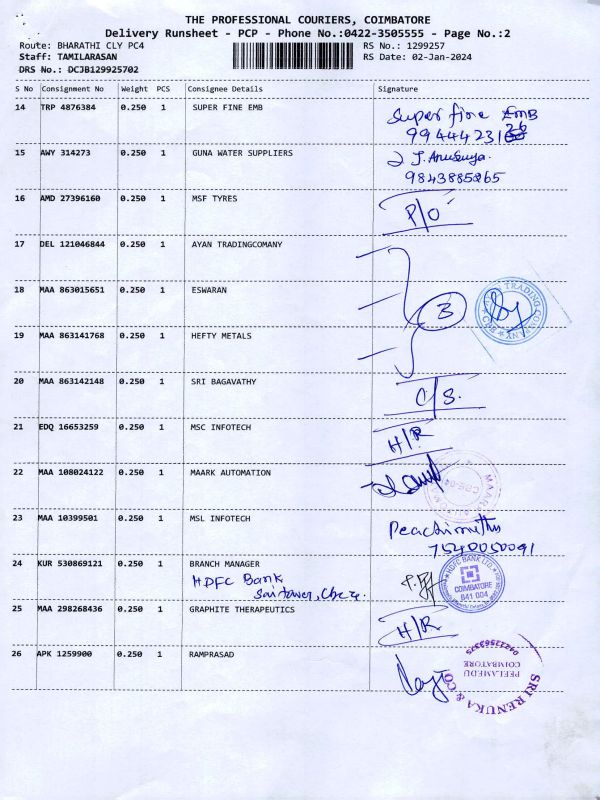 THE PROFESSIONAL COURIERS, COIMBATORE
Delivery Runsheet - PCP - Phone No.:0422-3505555 - Page No.:2
Route: BHARATHI CLY PC4 RS No.: 1299257
Staff: TAMILARASAN RS Date: 02-Jan-2024
DRS No.: DCJB129925702
S No Consignment No Weight PCS Consignee Details Signature
14 TRP 4876384 0.250 1 SUPER FINE EMB Super fine EMB
15 AWY 314273 0.250 1 GUNA WATER SUPPLIERS
9843885865
16 AMD 27396160 0.250 1 MSF TYRES P/O
17 DEL 121046844 0.250 1 AYAN TRADINGCOMANY
18 MAA 863015651 0.250 1 ESWARAN 3
TRADING COMPANY CBE
19 MAA 863141768 0.250 1 HEFTY METALS
20 MAA 863142148 0.250 1 SRI BAGAVATHY C/S.
21 EDQ 16653259 0.250 1 MSC INFOTECH H/R
22 MAA 108024122 0.250 1 MAARK AUTOMATION
23 MAA 10399501 0.250 1 MSL INFOTECH
7540050091
24 KUR 530869121 0.250 1 BRANCH MANAGER
HDFC Bank
HDFC BANK LTD. COIMBATORE 641 004
25 MAA 298268436 0.250 1 GRAPHITE THERAPEUTICS H/R
26 APK 1259900 0.250 1 RAMPRASAD
SRI RENUKA & CO
PEELAMEDU
COIMBATORE